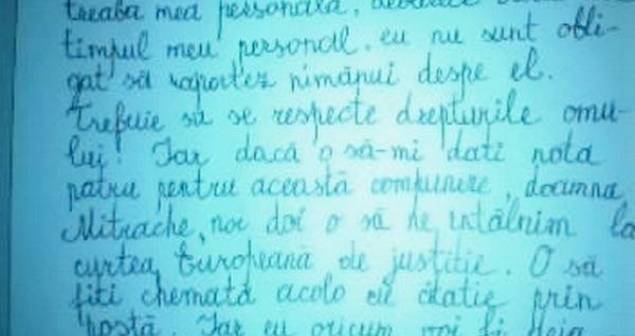 treaba mea personală,
timpul meu personal. eu nu sunt obli-
gat să raportez nimănui despe el.
Trebuie să se respecte drepturile omu-
lui! Iar dacă o să-mi dați nota
patru pentru această compunere, doamna
Mitrache, noi doi o să ne întâlnim la
curtea Europeană de justiție. O să
fiți chemată acolo cu citație prin
poștă. Iar eu oricum voi fi deja